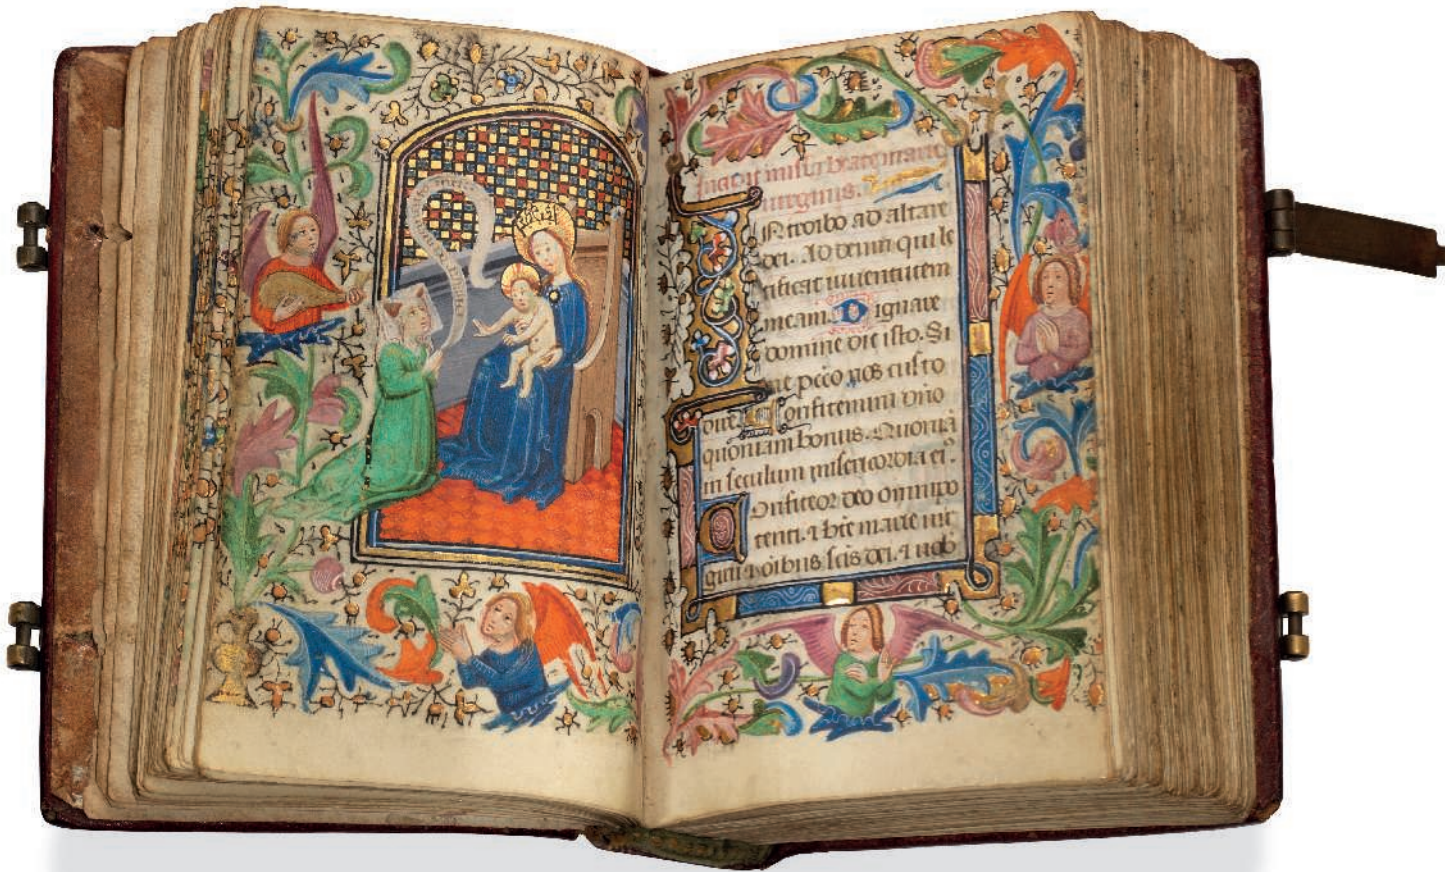 Incipit missa beate marie
virginis.
Ntroibo ad altare
dei. Ad deum qui le
tificat iuuentutem
meam. Dignare
domine die isto. Si
ne pccō nos custo
dire. Confitemini dn̄o
quoniam bonus. Quoniā
in seculum misericordia ei⁹.
Onfiteor deo omnipo
tenti. ⁊ bt̄e marie vir
gini ⁊ oībus scīs dei. ⁊ uob